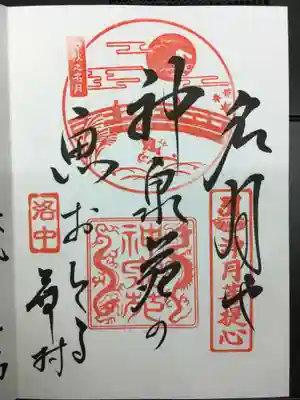 名月や
神泉苑の
魚おどる
蕪村
中秋之名月
月菩提心
洛中
神泉苑